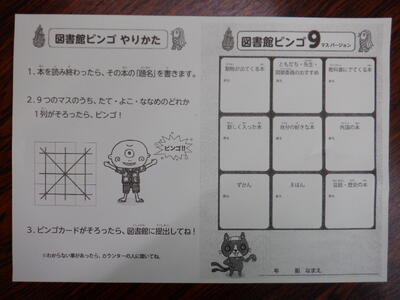 図書館ビンゴ やりかた
1．本を読み終わったら、その本の「題名」を書きます。
2．９つのマスのうち、たて・よこ・ななめのどれか
１列がそろったら、ビンゴ！
ビンゴ!!
3．ビンゴカードがそろったら、図書館に提出してね！
※わからない事があったら、カウンターの人に聞いてね。
図書館ビンゴ9マスバージョン
動物が出てくる本
ともだち・先生・
図書委員のおすすめ
教科書にでてくる本
新しく入った本
自分の好きな本
外国の本
ずかん
えほん
伝記・歴史の本
年 組 なまえ